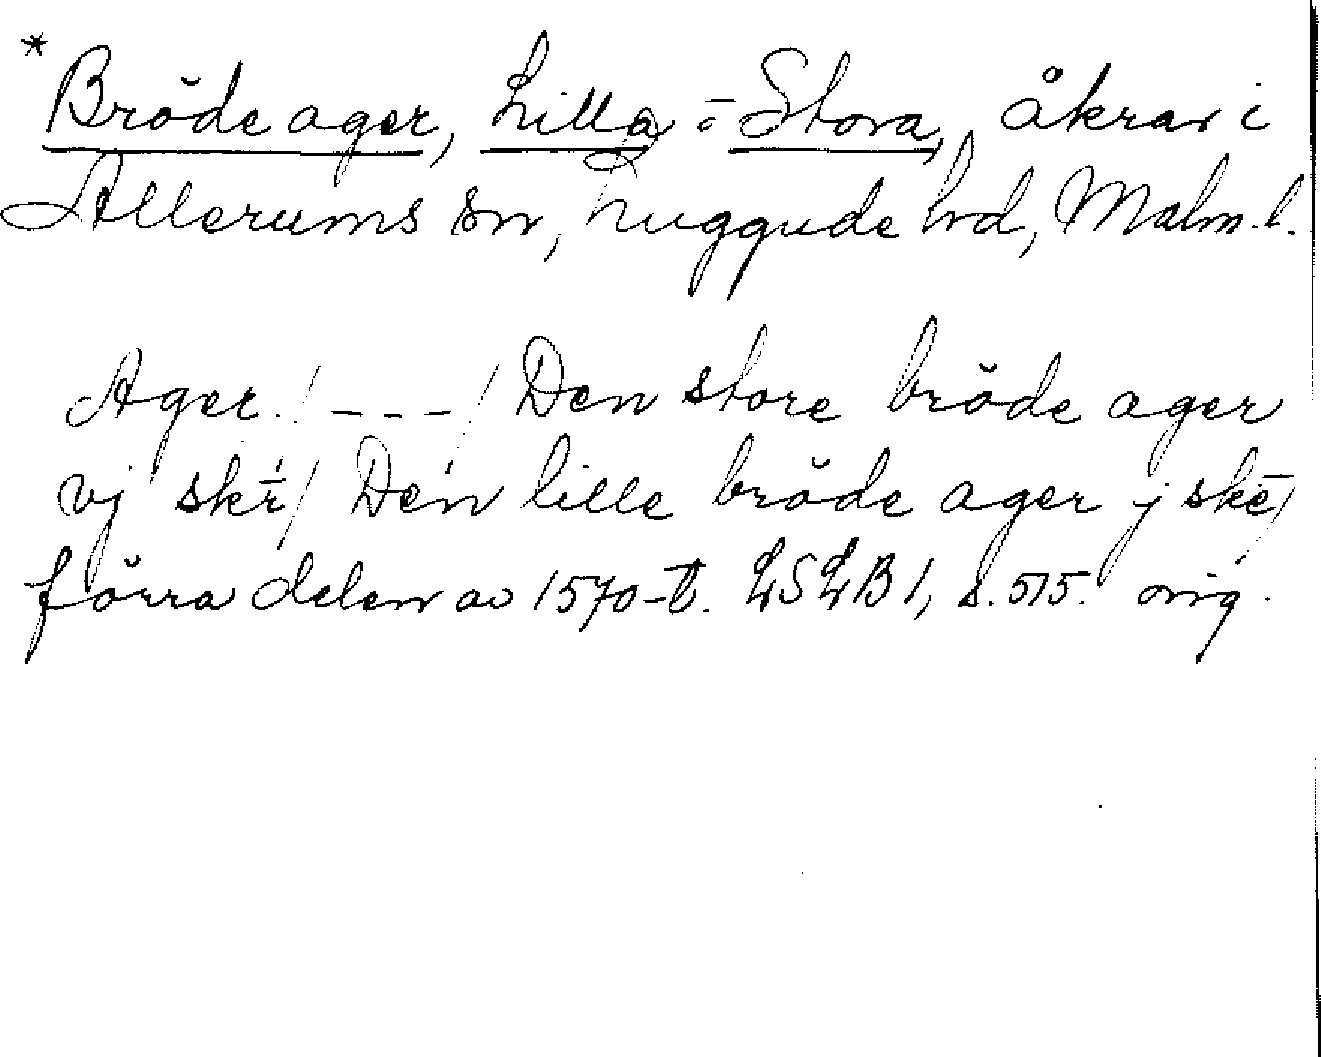 *Brŏde ager, Lilla o̅ Stora, åkrar i
Allerums sn, Luggude hd, Malm. l.
Ager / - - - / Den store brŏde ager
vj skr̅ / Den lille brŏde ager j ske̅ /
förra delen av 1570-t. LSLB 1, s. 515. orig.